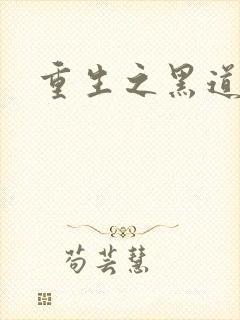 重生之黑道
苟芸慧